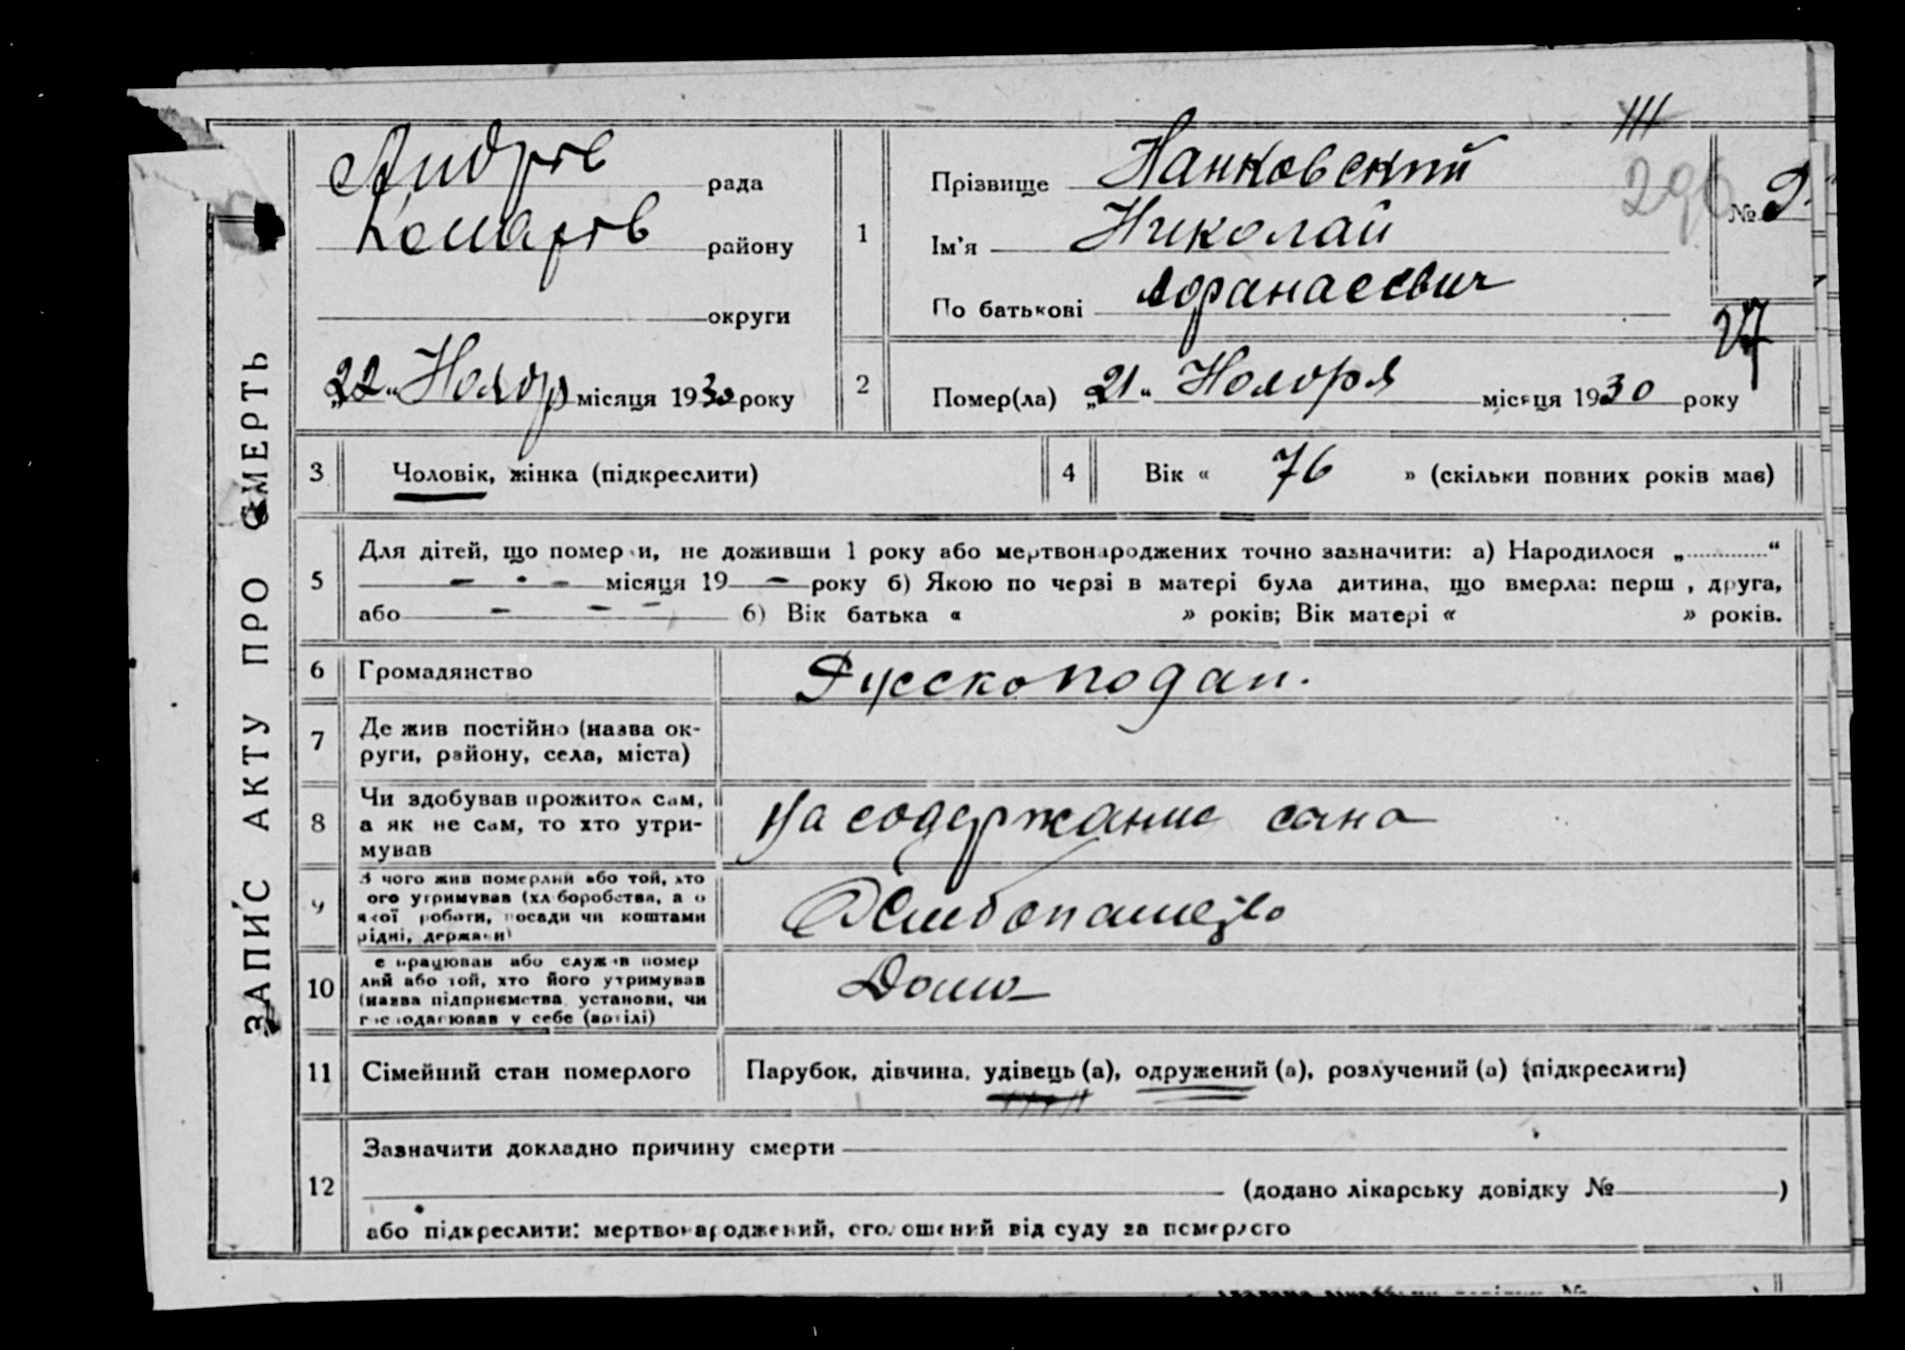 ЗАПИС АКТУ ПРО СМЕРТЬ
Андрів рада
Комарів району
округи
„22“ Ноябр місяця 1930 року
1
Прізвище Нанковский
Ім'я Николай
По батькові Афанасевич
111
296
№ 9
27
2
Помер(ла) „21“ Ноября місяця 1930 року
3
Чоловік, жінка (підкреслити)
4
Вік « 76 » (скільки повних років має)
5
Для дітей, що померли, не доживши 1 року або мертвонароджених точно зазначити: а) Народилося „............“
— місяця 19 — року б) Якою по черзі в матері була дитина, що вмерла: перш , друга,
або — — — б) Вік батька « » років; Вік матері « » років.
6
Громадянство
Русскоподан.
7
Де жив постійно (назва ок-
руги, району, села, міста)
8
Чи здобував прожиток сам,
а як не сам, то хто утри-
мував
На содержание сина
9
З чого жив померлий або той, хто
ого утримував (хліборобства, а о
якої роботи, посади чи коштами
рідні, держави)
Хлибопашество
10
е працював або служив помер
лий або той, хто його утримував
(назва підприємства, установи, чи
господарював у себе (артілі)
Дома
11
Сімейний стан померлого
Парубок, дівчина, удівець (а), одружений (а), розлучений (а) (підкреслити)
12
Зазначити докладно причину смерти
(додано лікарську довідку № )
або підкреслити: мертвонароджений, оголошений від суду за померлого